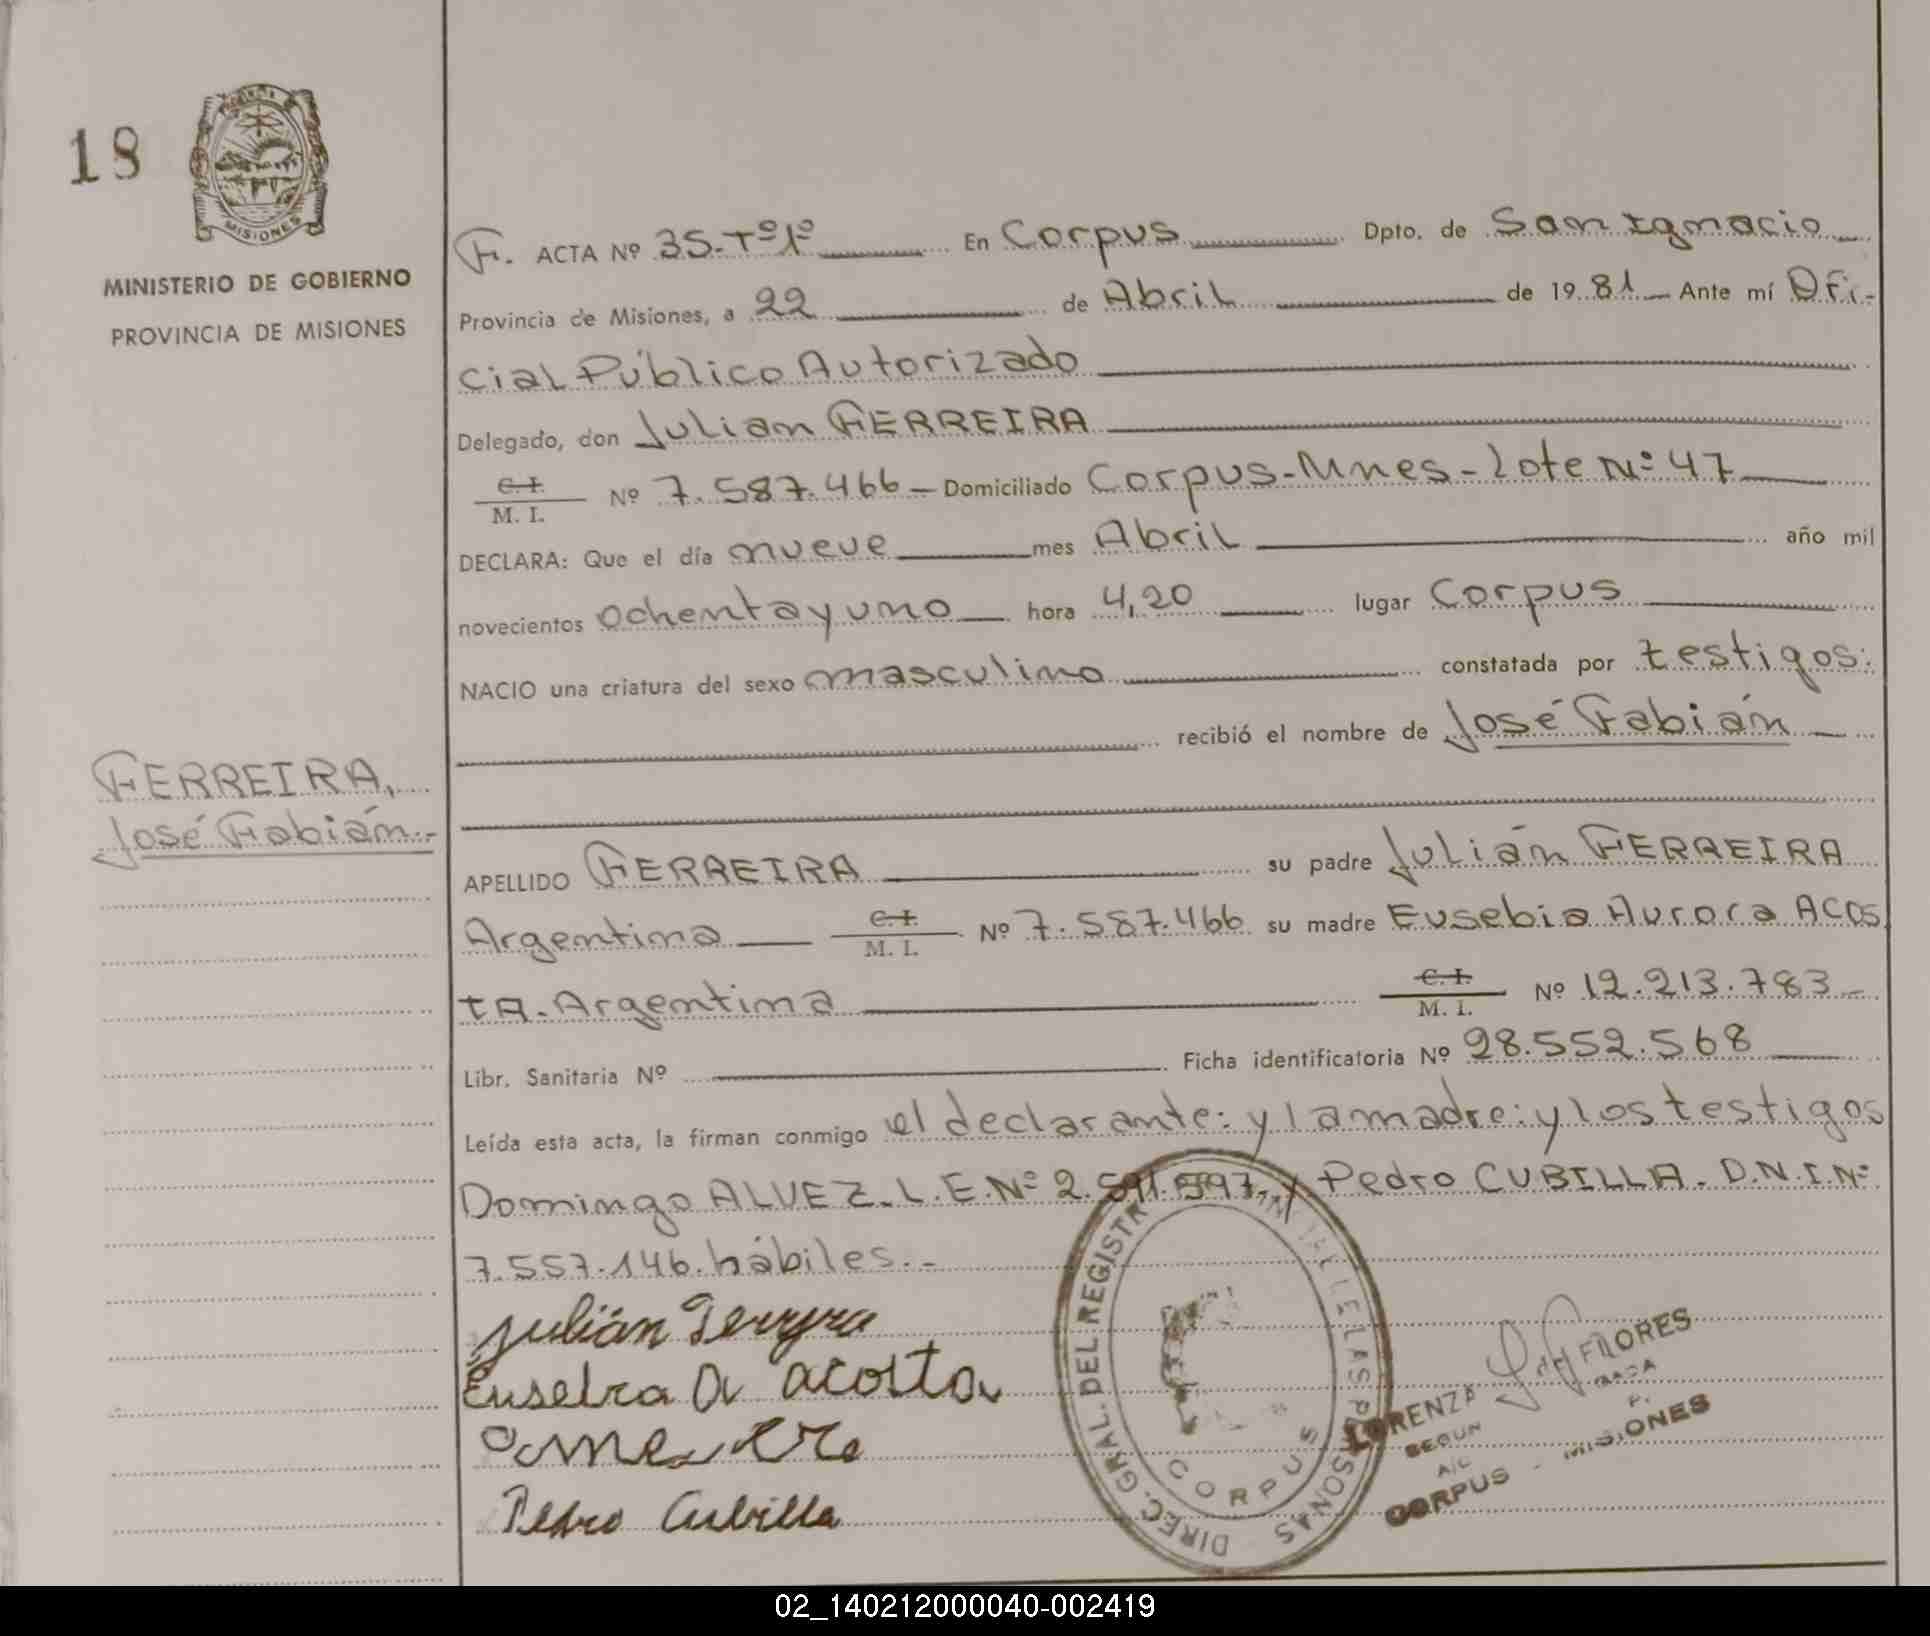 18
MISIONES
MINISTERIO DE GOBIERNO
PROVINCIA DE MISIONES
FERREIRA,
José Fabián.-
F. ACTA Nº 35-Tº1º En Corpus Dpto. de San Ignacio
Provincia de Misiones, a 22 de Abril de 1981 Ante mí Ofi-
cial Público Autorizado
Delegado, don Julian FERREIRA
C.I. / M. I. Nº 7.587.466 - Domiciliado Corpus-Mnes-Lote Nº 47
DECLARA: Que el día nueve mes Abril año mil
novecientos ochenta y uno hora 4,20 lugar Corpus
NACIO una criatura del sexo masculino constatada por testigos:
recibió el nombre de José Fabián
APELLIDO FERREIRA su padre Julián FERREIRA
Argentina C.I. / M. I. Nº 7.587.466 su madre Eusebia Aurora ACOS
TA-Argentina C.I. / M. I. Nº 12.213.783
Libr. Sanitaria Nº Ficha identificatoria Nº 28.552.568
Leída esta acta, la firman conmigo el declarante: y la madre: y los testigos
Domingo ALVEZ-L.E.Nº 2.591.597.-y Pedro CUBILLA. D.N.I.Nº
7.557.146.hábiles.-
Julián
a acosta
Pedro Cubilla
DIREC. GRAL. DEL REGISTR LAS PERSONAS
CORPUS
LORENZA FLORES
CORPUS - MISIONES
02_140212000040-002419